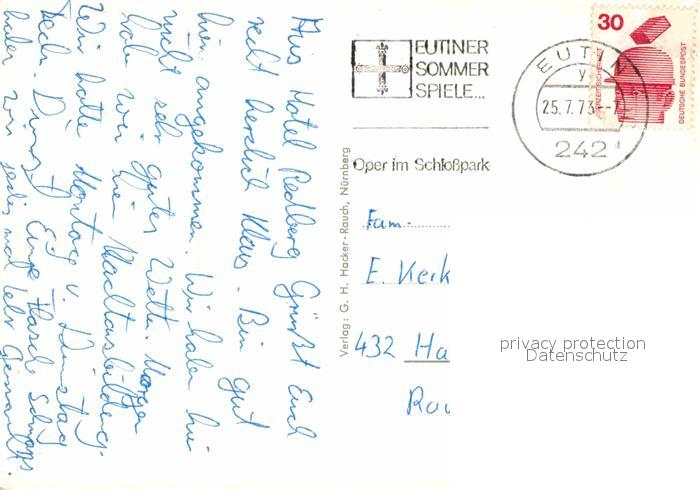 Aus Hotel Redberg Grüßt Euch
recht herzlich Klaus. Bin gut
hier angekommen. Wir haben hier
nicht sehr gutes Wetter. Morgen
habe wir hie Nachtausbildung.
Wir hatte Montag u. Dienstag
Eine Flasche Schnaps
haben wir jedes mal leer Gemacht.
EUTINER
SOMMER
SPIELE...
Oper im Schloßpark
EUTIN
y
25.7.73
242
30
JEDERZEIT SICHERHEIT
DEUTSCHE BUNDESPOST
Verlag: G. H. Hacker-Rauch, Nürnberg
Fam.
E. Kerk
432 Ha
privacy protection
Datenschutz